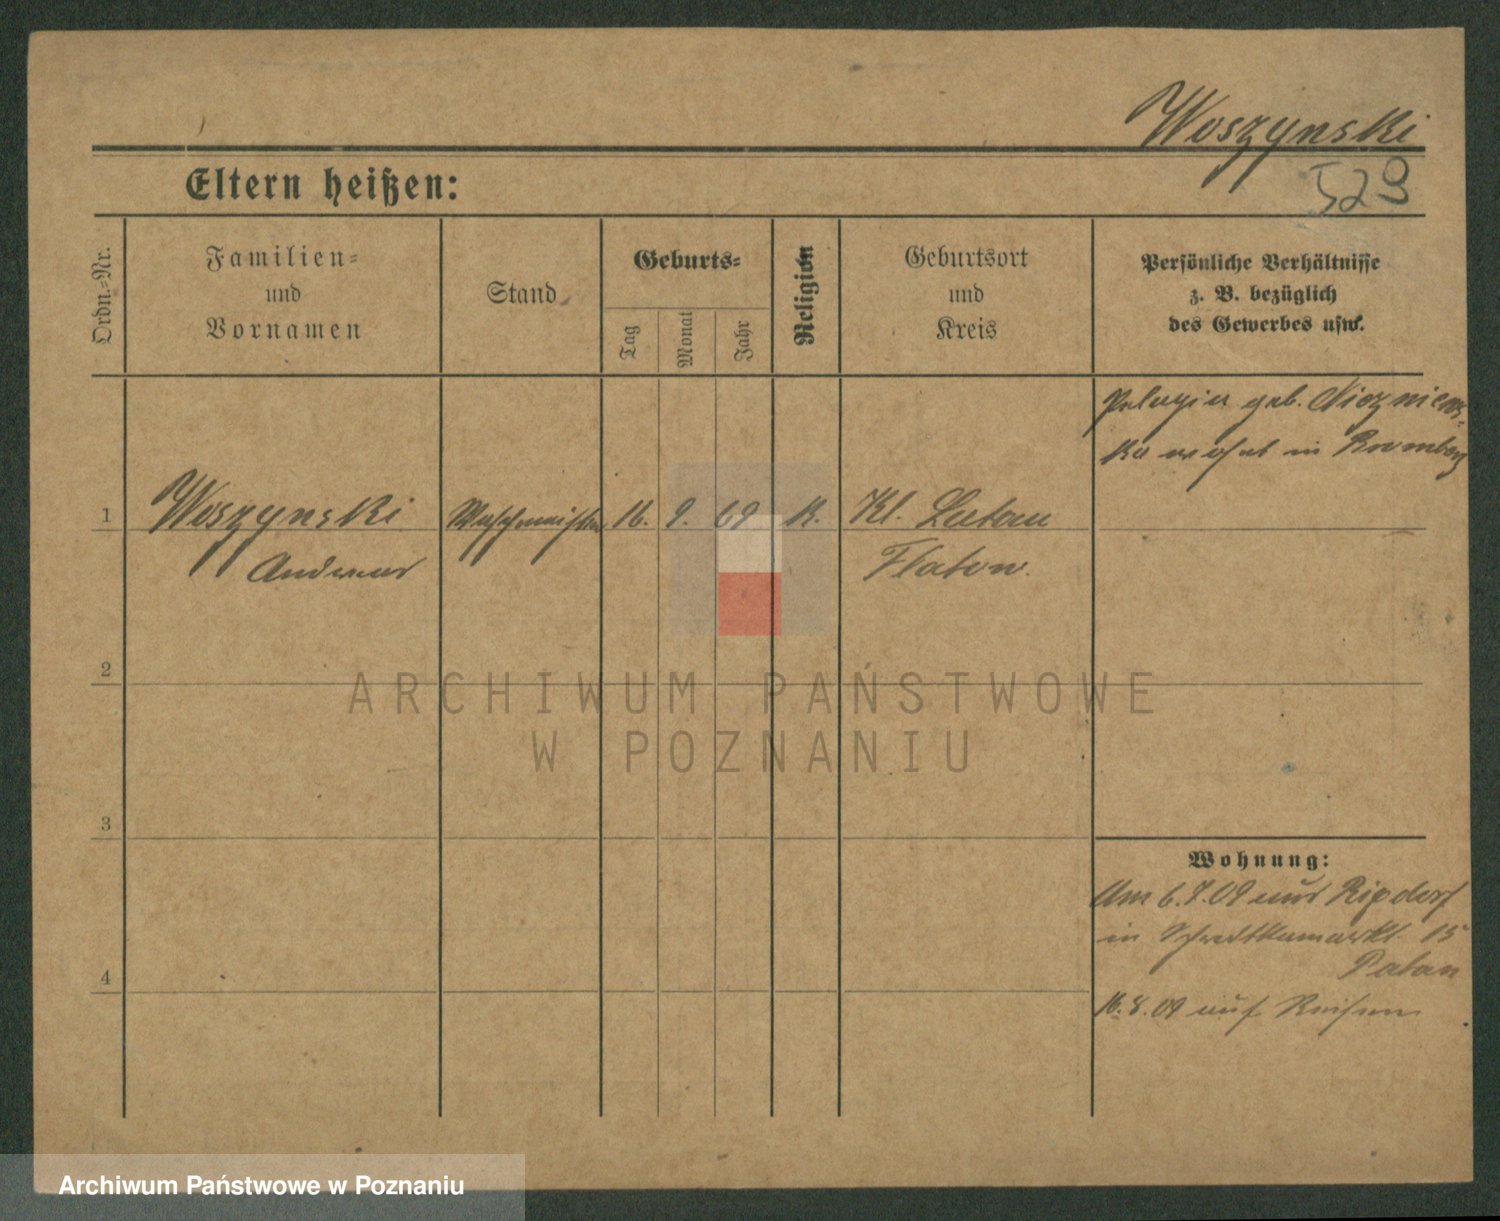 Woszynski
529
Eltern heißen:
Ordn.-Nr.
Familien-
und
Vornamen
Stand
Geburts-
Tag
Monat
Jahr
Religion
Geburtsort
und
Kreis
Persönliche Verhältnisse
z. B. bezüglich
des Gewerbes usw.
Pelagia geb. Niezniews-
ka wohnt in Bromberg
1 Woszynski 16. 9. 69 K. Kl. Lutau
Andreas Flatow.
2
3
4
Wohnung:
Am 6.7.09 aus Rixdorf
in 15
16.8.09 auf Reisen
ARCHIWUM PAŃSTWOWE
W POZNANIU
Archiwum Państwowe w Poznaniu